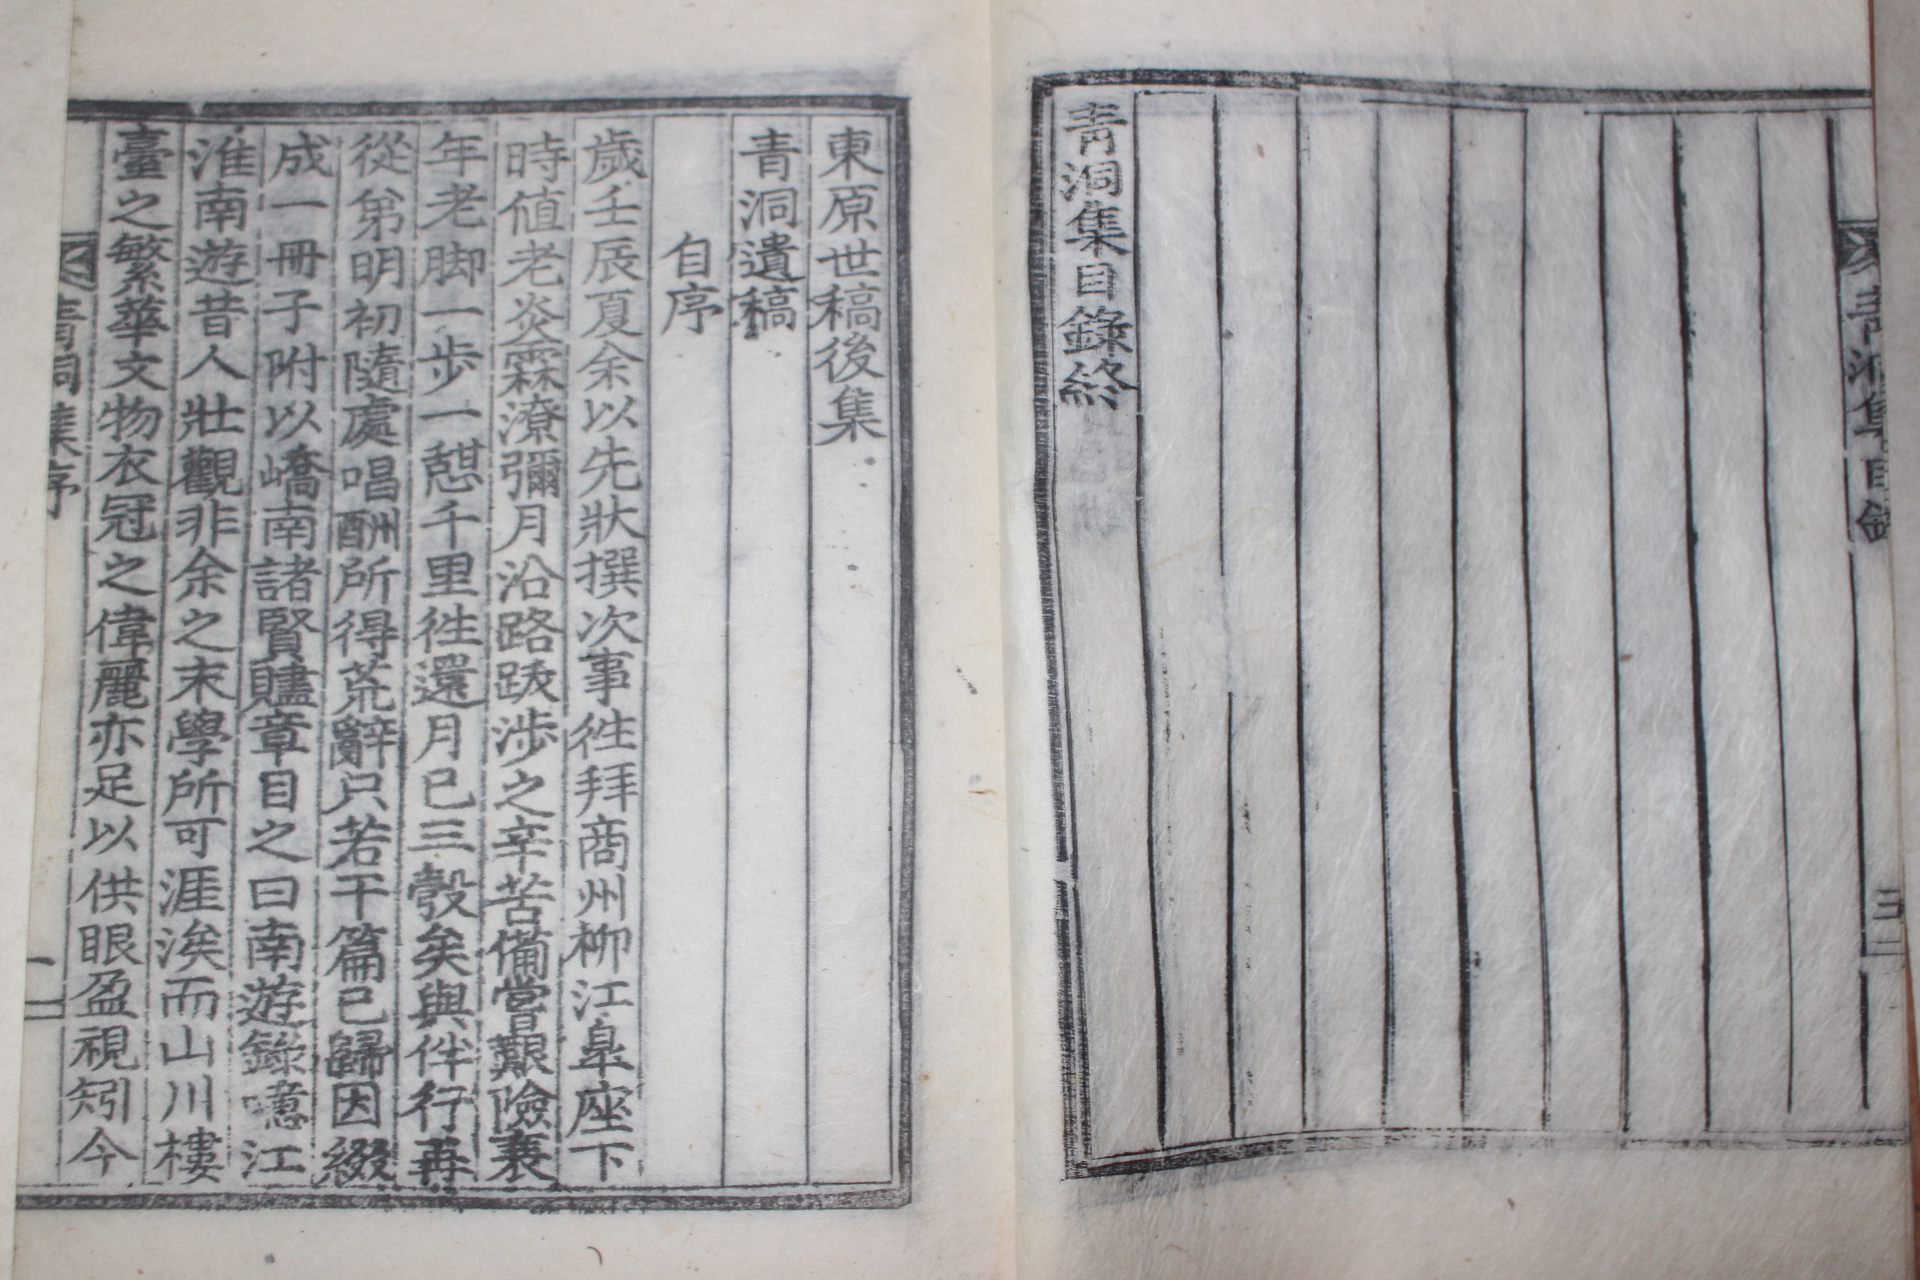 青洞集目錄
三
青洞集目錄終
東原世稿後集
青洞遺稿
自序
歲壬辰夏余以先狀撰次事徃拜商州柳江臯座下
時値老炎霖潦彌月沿路跋涉之辛苦備嘗艱險衰
年老脚一步一憇千里徃還月已三彀矣與伴行再
從弟明初隨處唱酬所得荒辭只若干篇已歸因綴
成一冊子附以嶠南諸賢贐章目之曰南遊錄噫江
淮南遊昔人壯觀非余之末學所可涯涘而山川樓
臺之繁華文物衣冠之偉麗亦足以供眼盈視矧今
青洞集序
一